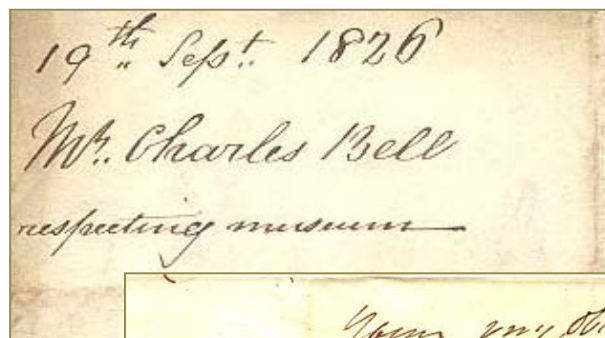 19th Sept. 1826
Mr. Charles Bell
respecting museum
Your very Ob